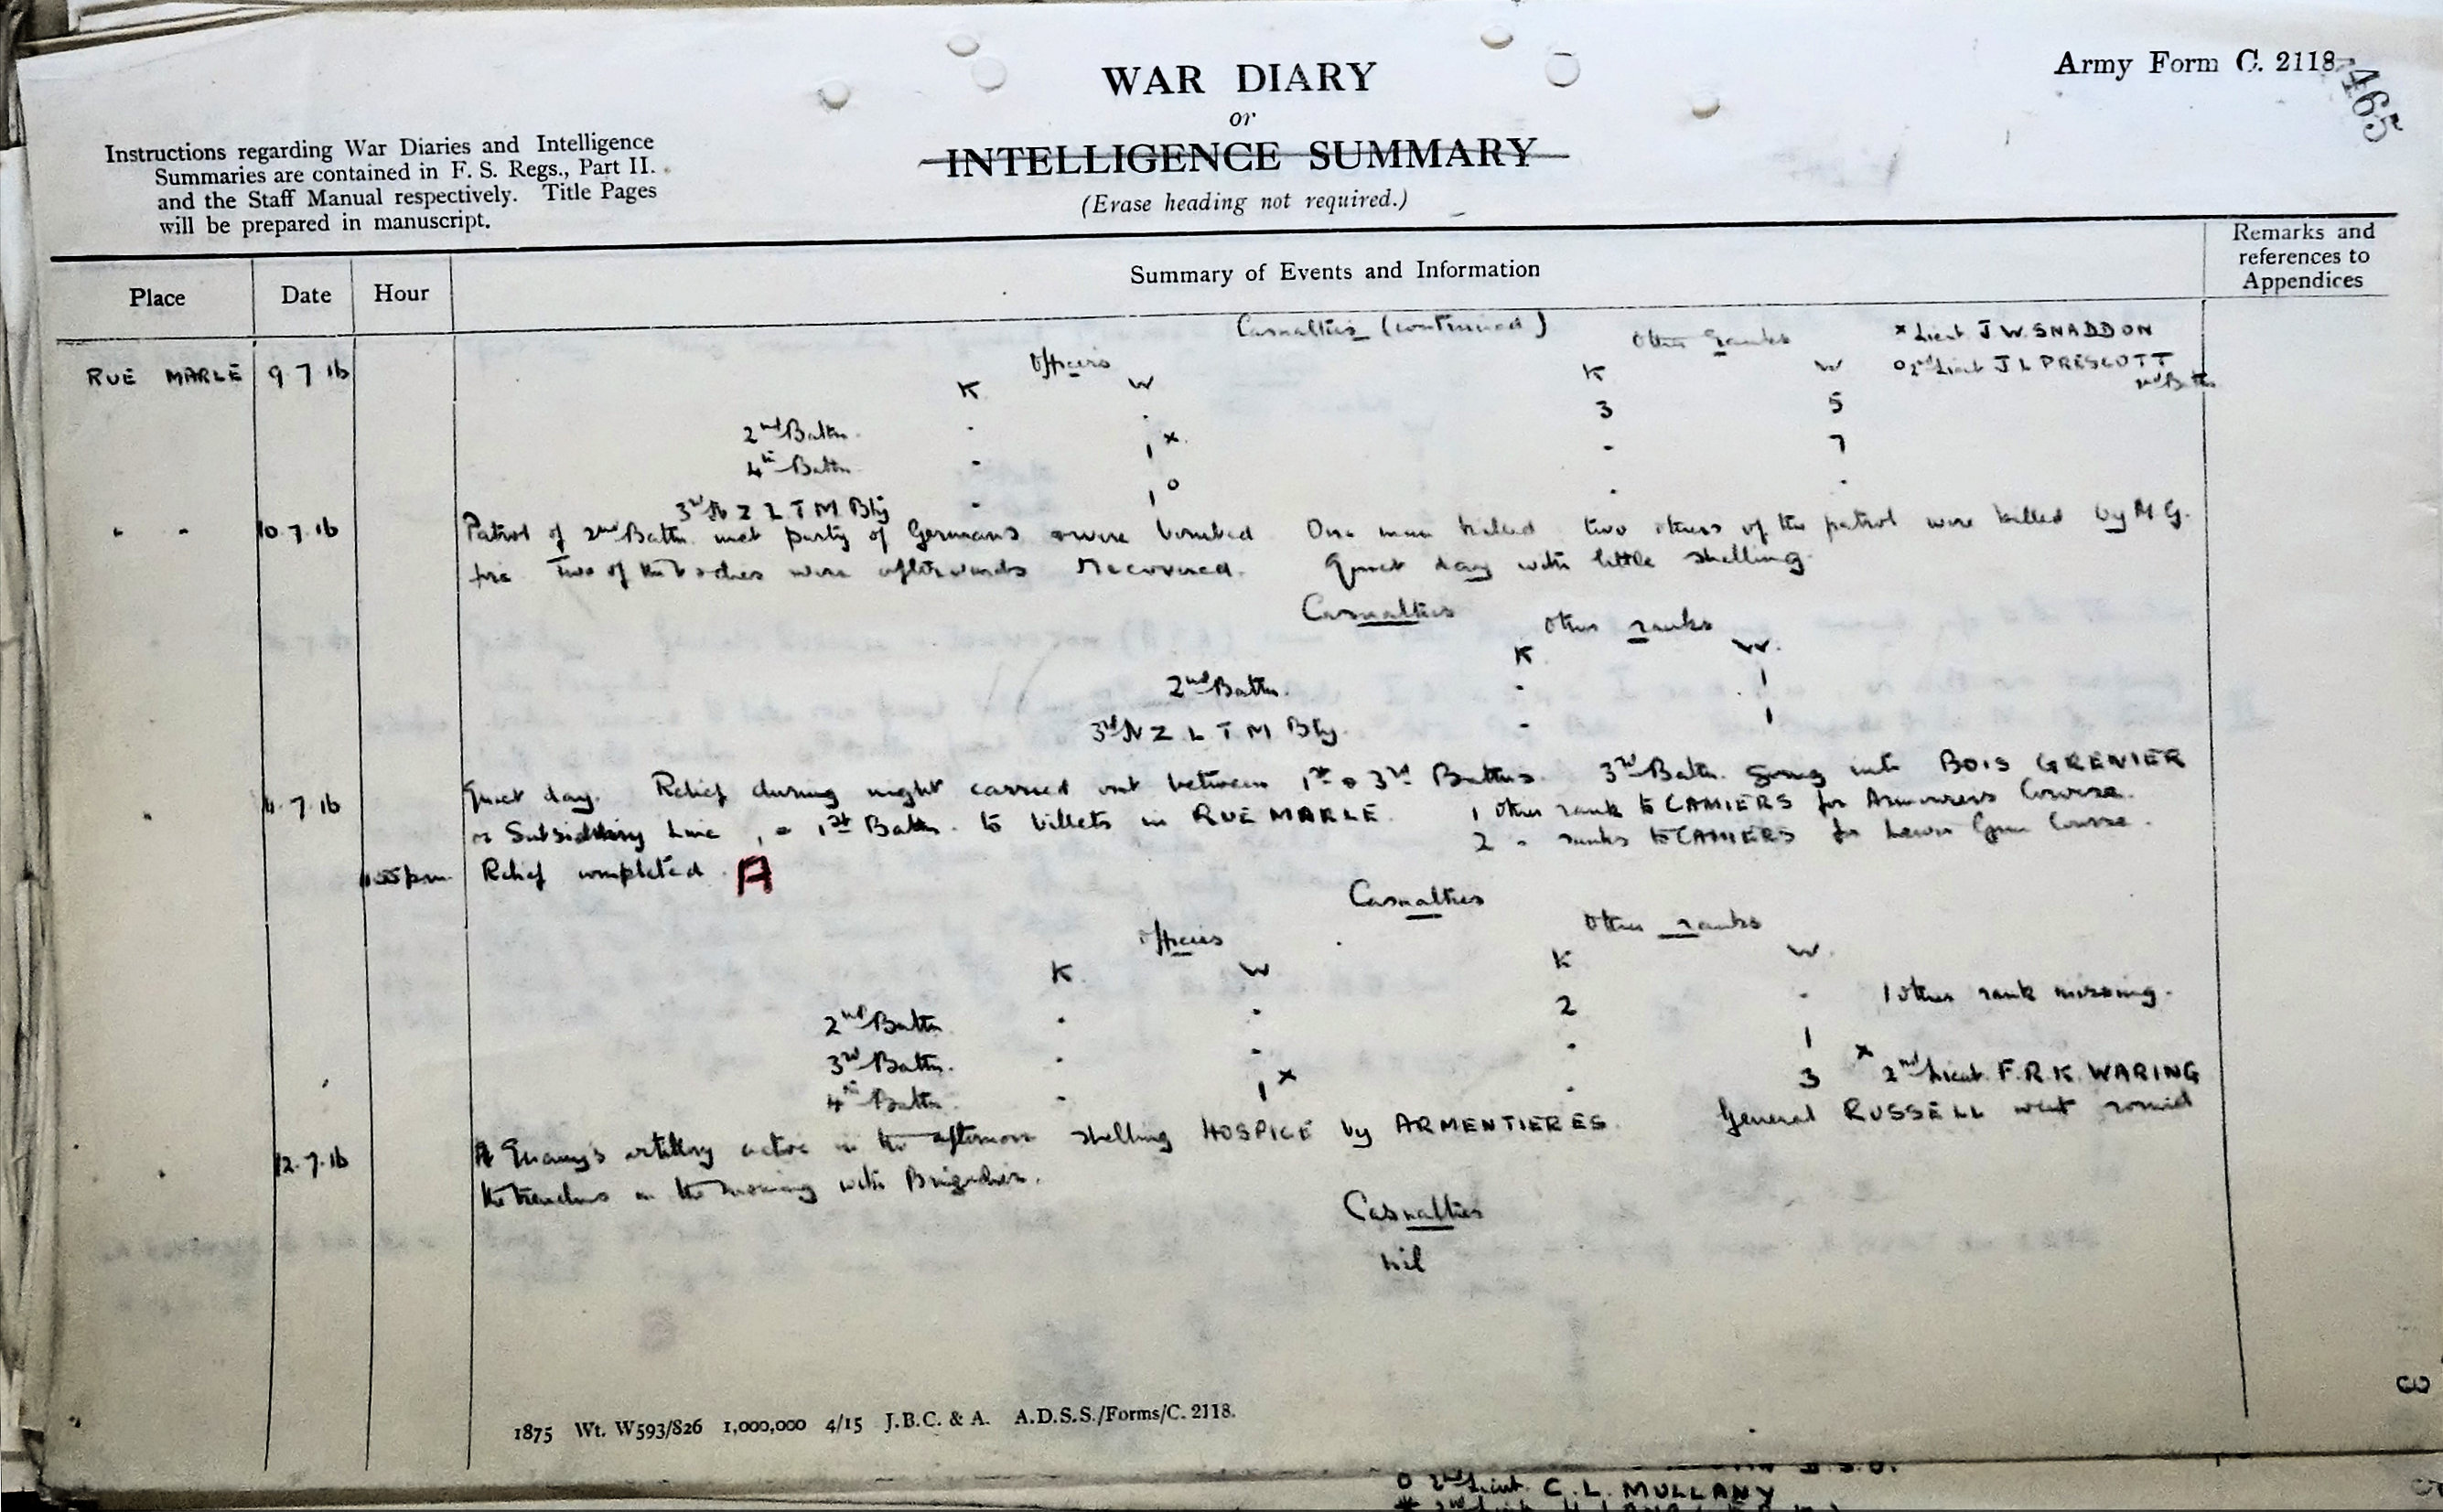 Army Form C. 2118.
465
WAR DIARY
or
INTELLIGENCE SUMMARY
(Erase heading not required.)
Instructions regarding War Diaries and Intelligence
Summaries are contained in F. S. Regs., Part II.
and the Staff Manual respectively. Title Pages
will be prepared in manuscript.
Place Date Hour Summary of Events and Information Remarks and
references to
Appendices
Casualties (continued)
RUE MARLE 9 7 16 Officers Other Ranks x Lieut J W. SNADDON
K W K W o 2nd Lieut J L PRESCOTT
2nd Battn
2nd Battn. - . 3 5
4th Battn - 1 x - 7
3rd N Z L T M Bty - 1 o . .
" " 10. 7. 16 Patrol of 2nd Battn. met party of Germans & were bombed One man killed two others of the patrol were killed by M G.
fire Two of the bodies were afterwards recovered. Quiet day with little shelling.
Casualties
Other ranks
K W.
2nd Battn. - 1
3rd N Z L T M Bty. - 1
" 11. 7. 16 Quiet day. Relief during night carried out between 1st & 3rd Battns. 3rd Battn. going into BOIS GRENIER
Subsidiary Line, & 1st Battn. to billets in RUE MARLE. 1 Other rank to CAMIERS for Armourers Course.
2 " ranks to CAMIERS for Lewis Gun Course.
55 pm. Relief completed. A
Casualties
Officers Other ranks
K W K W.
2nd Battn . . 2 . 1 Other rank missing.
3rd Battn. . . . 1
4th Battn. . 1 x . 3 x 2nd Lieut F.R.K. WARING
" 12. 7. 16 Enemy's artillery active in the afternoon shelling HOSPICE by ARMENTIERES. General RUSSELL went round
the trenches in the morning with Brigadier.
Casualties
Nil
1875 Wt. W593/826 1,000,000 4/15 J.B.C. & A. A.D.S.S./Forms/C. 2118.
D.S.O.
O 2nd Lieut. C. L. MULLANY